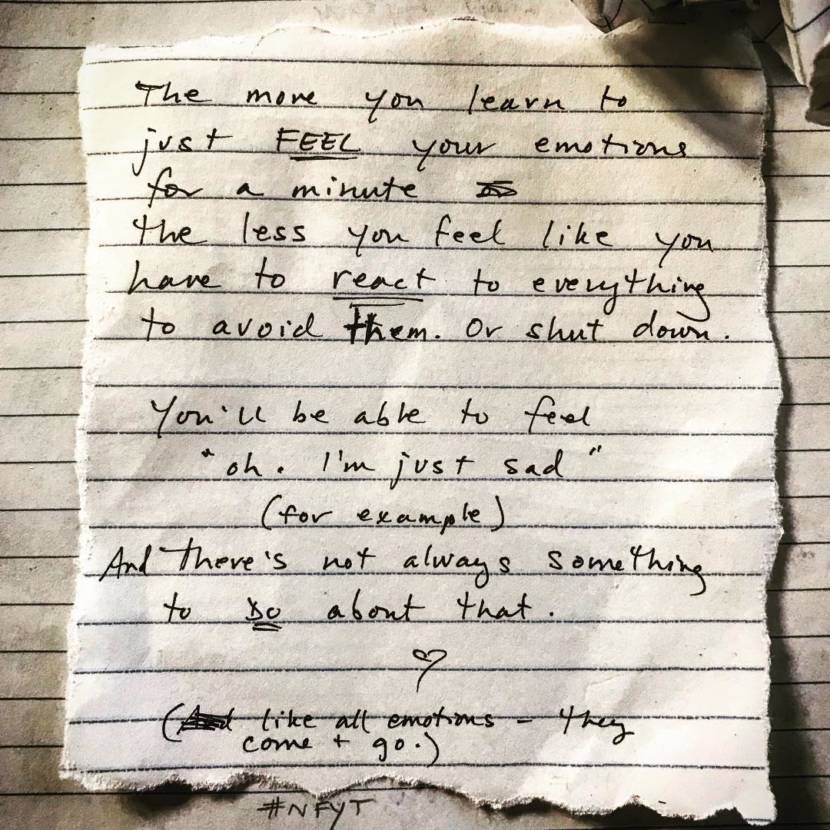 The more you learn to
just FEEL your emotions
for a minute
the less you feel like you
have to react to everything
to avoid them. Or shut down.
You'll be able to feel
"oh. I'm just sad"
(for example)
And there's not always something
to DO about that.
(And like all emotions - they
come + go.)
#NFYT